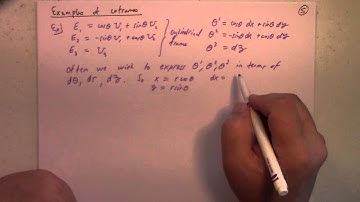 Examples of coframes
⑤
Ex) E₁ = cosθ U₁ + sinθ U₂
E₂ = -sinθ U₁ + cosθ U₂
E₃ = U₃
cylindrical frame
θ¹ = cosθ dx + sinθ dy
θ² = -sinθ dx + cosθ dy
θ³ = dz
Often we wish to express θ¹, θ², θ³ in terms of
dθ, dr, dz. So x = r cosθ dx =
y = r sinθ